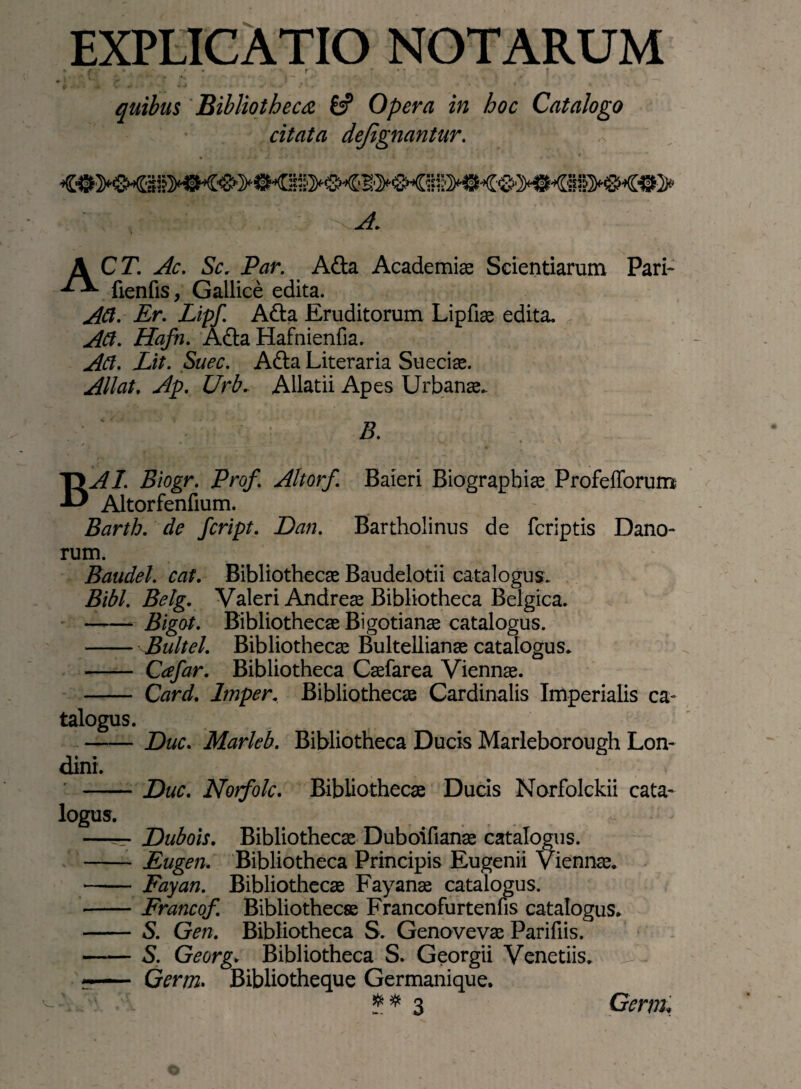 EXPLICATIO NOTARUM
quibus Bibliothecæ & Opera in hoc Catalogo
citata deſignantur.
A.
ACT. Ac. Sc. Par. Acta Academiæ Scientiarum Pari-
ſienſis, Gallicè edita.
Act. Er. Lipſ. Acta Eruditorum Lipſiæ edita.
Act. Hafn. Acta Hafnienſia.
Act. Lit. Suec. Acta Literaria Sueciæ.
Allat. Ap. Urb. Allatii Apes Urbanæ.
B.
BAI. Biogr. Prof. Altorf. Baieri Biographiæ Profeſſorum
Altorfenſium.
Barth. de ſcript. Dan. Bartholinus de ſcriptis Dano-
rum.
Baudel. cat. Bibliothecæ Baudelotii catalogus.
Bibl. Belg. Valeri Andreæ Bibliotheca Belgica.
—— Bigot. Bibliothecæ Bigotianæ catalogus.
—— Bultel. Bibliothecæ Bultellianæ catalogus.
—— Cæſar. Bibliotheca Cæſarea Viennæ.
—— Card. Imper. Bibliothecæ Cardinalis Imperialis ca-
talogus.
—— Duc. Marleb. Bibliotheca Ducis Marleborough Lon-
dini.
—— Duc. Norfolc. Bibliothecæ Ducis Norfolckii cata-
logus.
—— Dubois. Bibliothecæ Duboiſianæ catalogus.
—— Eugen. Bibliotheca Principis Eugenii Viennæ.
—— Fayan. Bibliothecæ Fayanæ catalogus.
—— Francof. Bibliothecæ Francofurtenſis catalogus.
—— S. Gen. Bibliotheca S. Genovevæ Pariſiis.
—— S. Georg. Bibliotheca S. Georgii Venetiis.
—— Germ. Bibliotheque Germanique.
** 3 Germ.